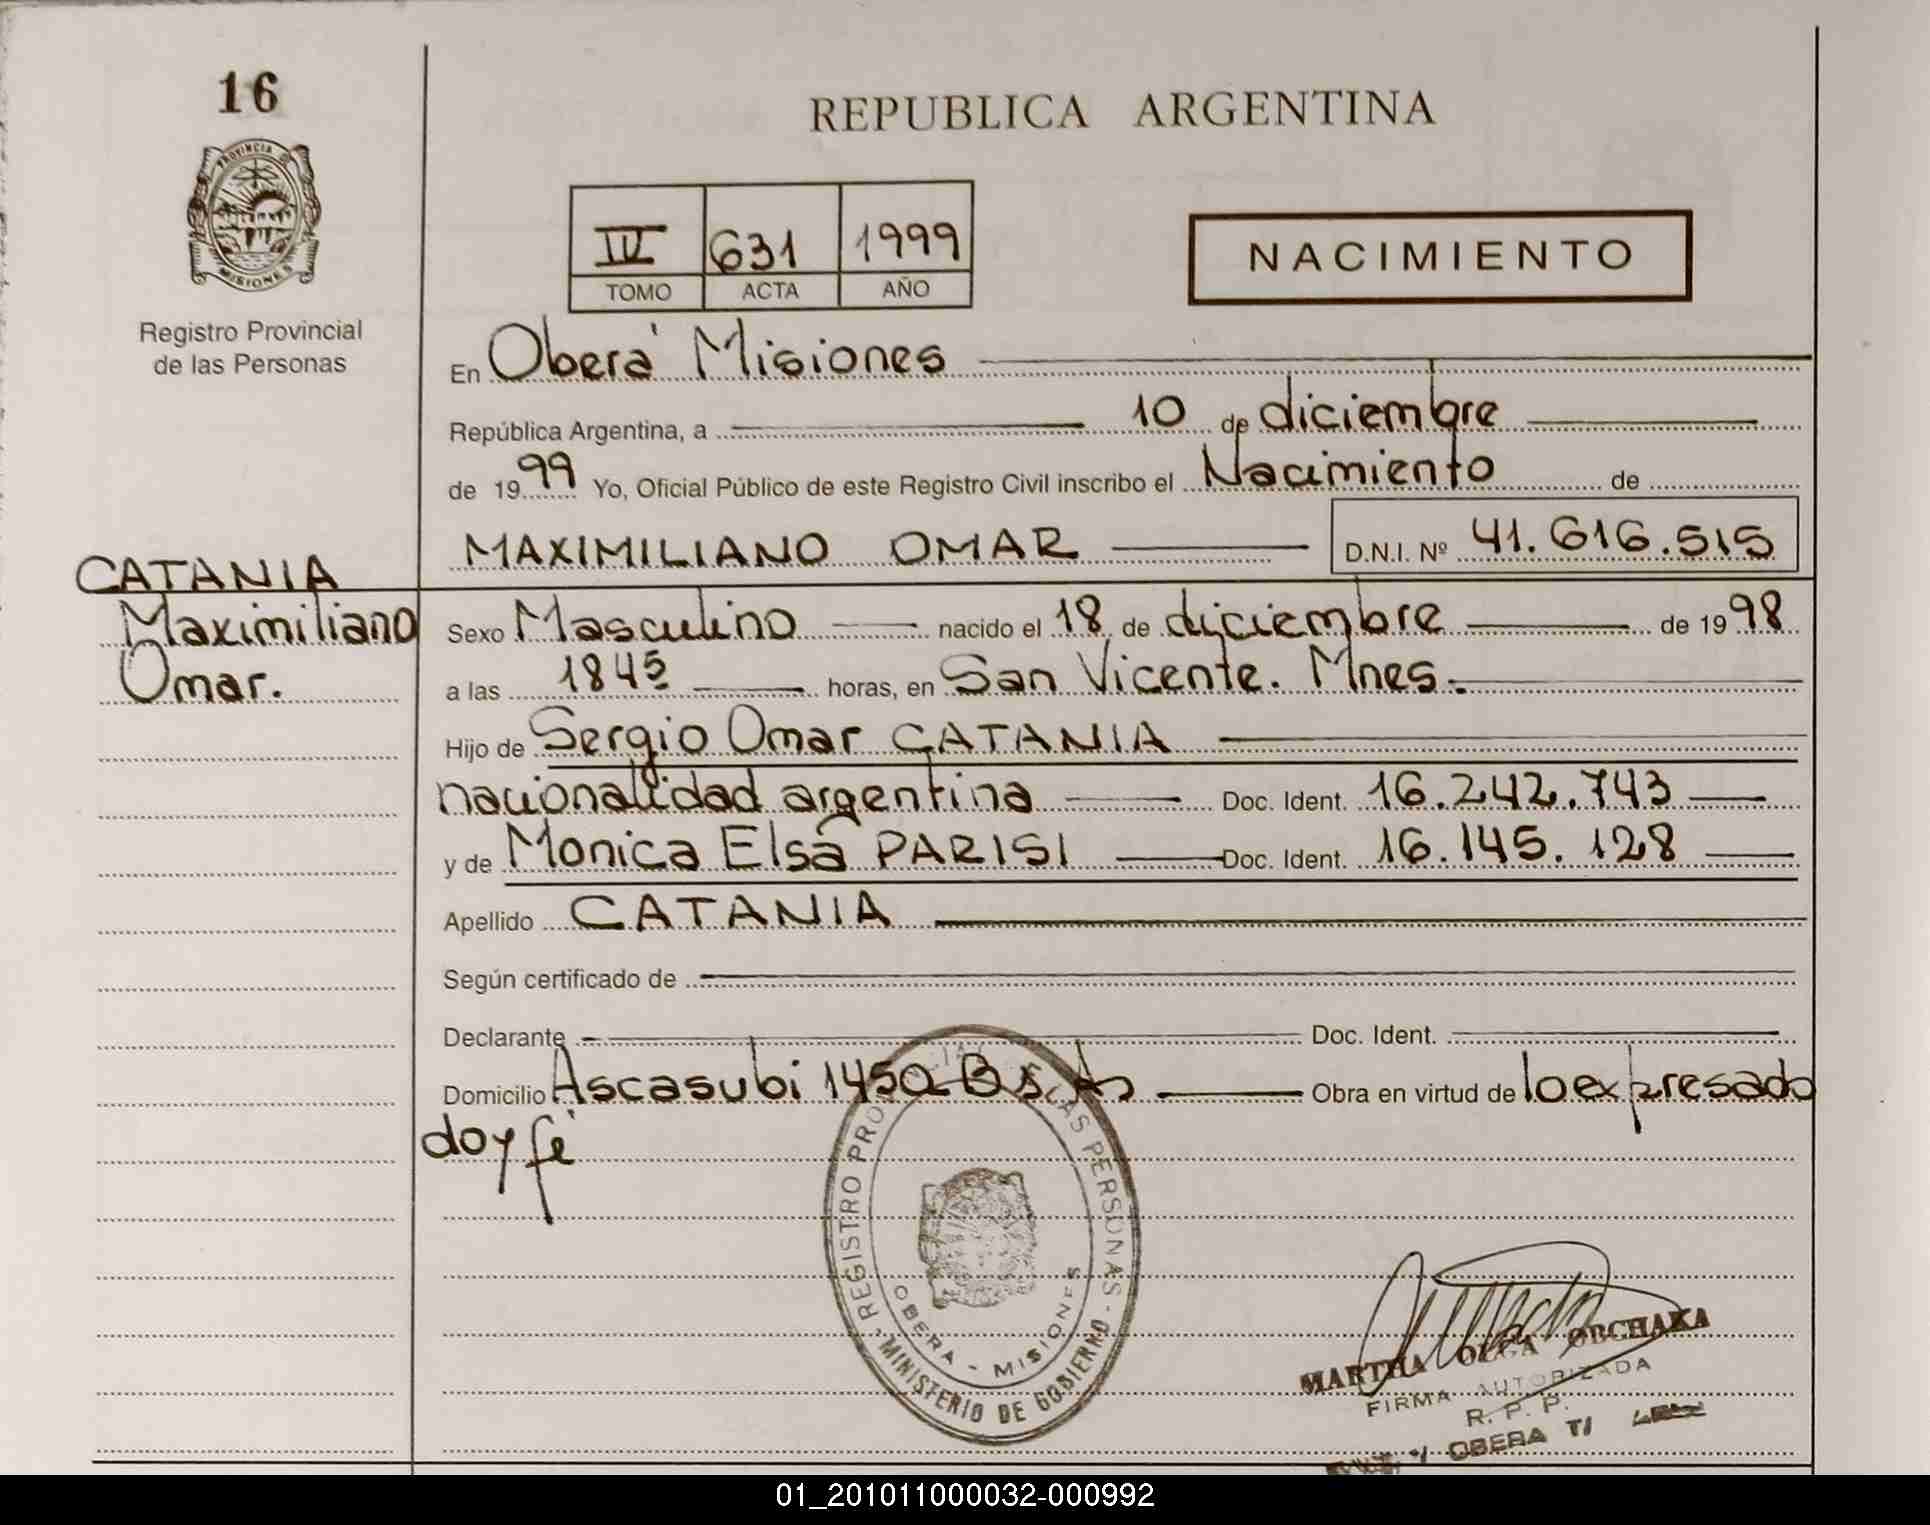 16
PROVINCIA DE
MISIONES
Registro Provincial
de las Personas
REPUBLICA ARGENTINA
IV 631 1999
TOMO ACTA AÑO
NACIMIENTO
En Oberá Misiones
República Argentina, a 10 de diciembre
de 1999 Yo, Oficial Público de este Registro Civil inscribo el Nacimiento de
MAXIMILIANO OMAR D.N.I. Nº 41.616.515
CATANIA
Maximiliano
Omar.
Sexo Masculino nacido el 18 de diciembre de 1998
a las 1845 horas, en San Vicente. Mnes.
Hijo de Sergio Omar CATANIA
nacionalidad argentina Doc. Ident. 16.242.743
y de Monica Elsa PARISI Doc. Ident. 16.145.128
Apellido CATANIA
Según certificado de
Declarante Doc. Ident.
Domicilio Ascasubi 1450 Bs. As Obra en virtud de lo expresado
doy fé
REGISTRO PRO LAS PERSONAS
OBERA - MISIONES
MINISTERIO DE GOBIERNO
MARTHA OLGA OBCHAKA
FIRMA AUTORIZADA
R. P. P.
OBERA
01_201011000032-000992